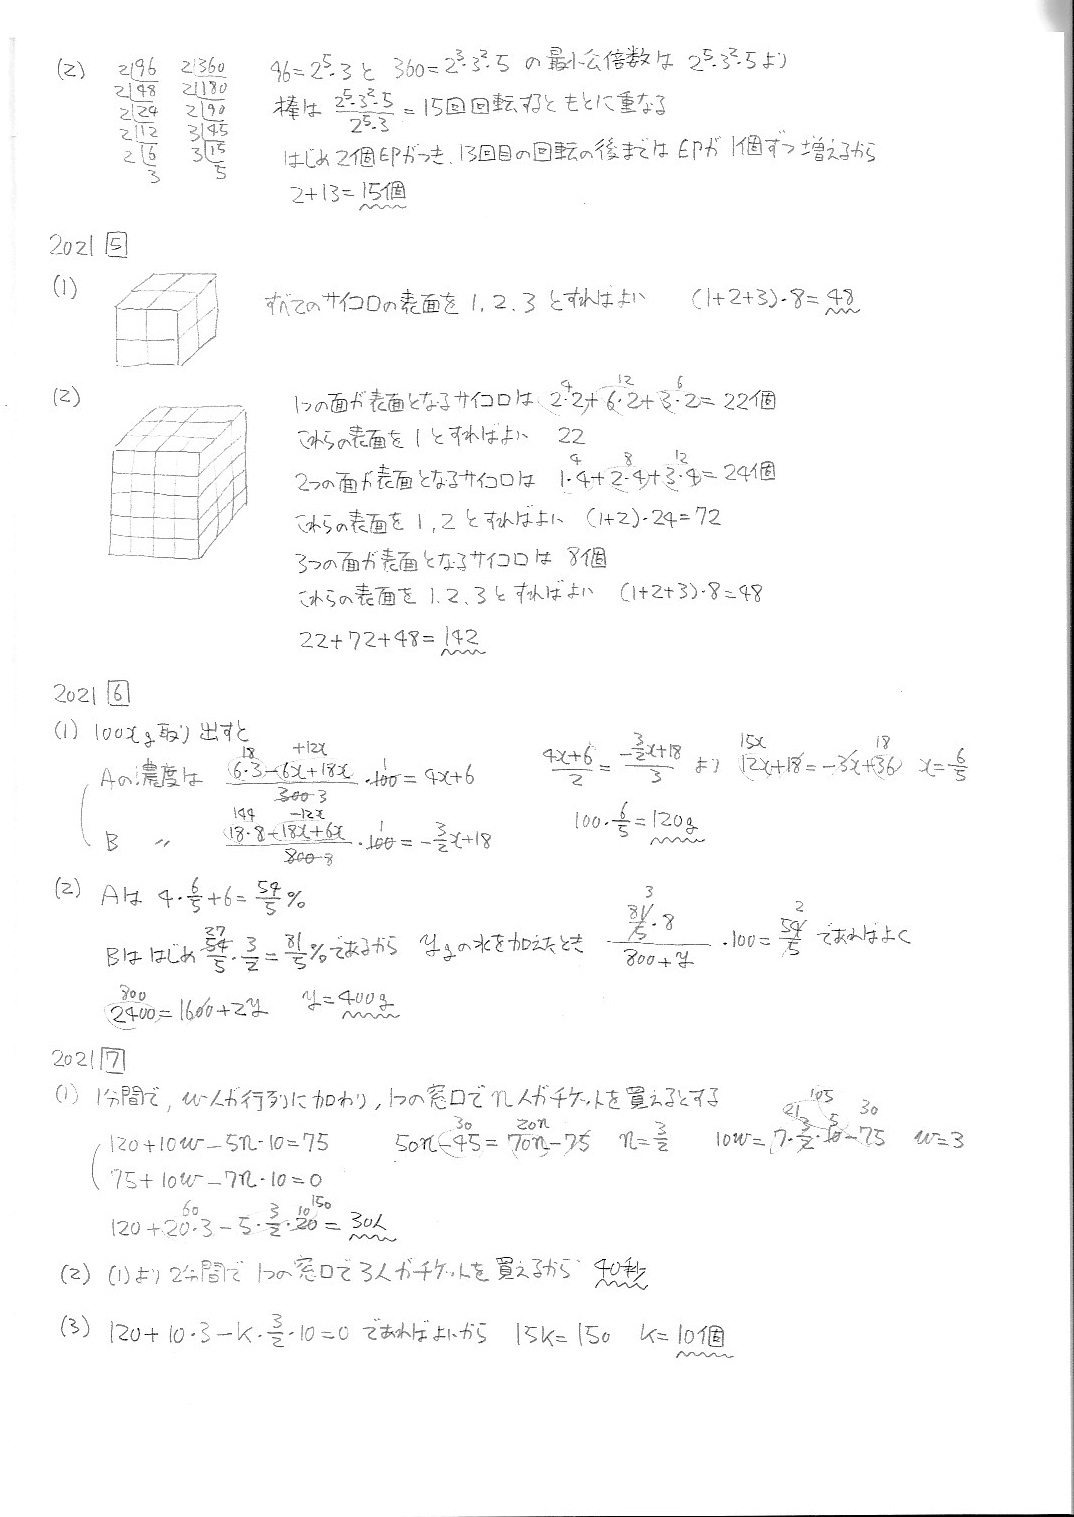 (2) 2|96 2|360 96=2⁵·3 と 360=2³·3²·5 の最小公倍数は 2⁵·3²·5より
2|48 2|180
2|24 2|90 棒は (2⁵·3²·5)/(2⁵·3) = 15回回転するともとに重なる
2|12 3|45
2|6 3|15 はじめ2個EPがつき、13回目の回転の後まではEPが1個ずつ増えるから
3 5
2+13=15個
2021 5
(1) すべてのサイコロの表面を1, 2, 3とすればよい (1+2+3)·8=48
(2) 1つの面が表面となるサイコロは 2·2+6·2+3·2=22個
4 12 6
これらの表面を1とすればよい 22
2つの面が表面となるサイコロは 1·4+2·4+3·4=24個
4 8 12
これらの表面を1, 2とすればよい (1+2)·24=72
3つの面が表面となるサイコロは 8個
これらの表面を1, 2, 3とすればよい (1+2+3)·8=48
22+72+48=142
2021 6
(1) 100xg取り出すと
18 +12x
Aの濃度は (6·3-6x+18x)/(300 3)·100=4x+6 (4x+6)/2=(-3/2x+18)/3 より 12x+18=-3x+36 x=6/5
1 15x 18
144 -12x
B 〃 (18·8-18x+6x)/(800 8)·100=-3/2x+18 100·6/5=120g
1
(2) Aは 4·6/5+6=54/5%
Bははじめ 54/5·3/2=81/5%であるから ygの水を加えたとき (81/5·8)/(800+y)·100=54/5 であればよく
27 3 2
800
2400=1600+2y y=400g
2021 7
(1) 1分間で, w人が行列に加わり, 1つの窓口でn人がチケットを買えるとする
120+10w-5n·10=75 50n-45=70n-75 n=3/2 10w=7·3/2·10-75 w=3
30 20n 21 105 5 30
75+10w-7n·10=0
60 10 150
120+20·3-5·3/2·20=30人
(2) (1)より2分間で1つの窓口で3人がチケットを買えるから 40秒
(3) 120+10·3-k·3/2·10=0 であればよいから 15k=150 k=10個